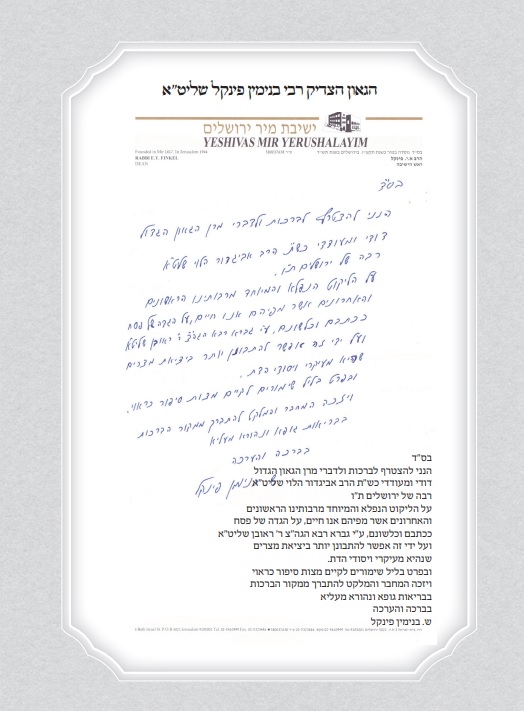 הגאון הצדיק רבי בנימין פינקל שליט"א
ישיבת מיר ירושלים
YESHIVAS MIR YERUSHALAYIM
Founded in Mir 1817. In Jerusalem 1944
RABBI E. Y. FINKEL
DEAN
הרב א.י. פינקל
ראש הישיבה
בס"ד
הנני להצטרף לברכות ולדברי מרן הגאון הגדול
דודי ומעודדי כש"ת הרב אביגדור הלוי שליט"א
רבה של ירושלים ת"ו.
על הליקוט הנפלא והמיוחד מרבותינו הראשונים
והאחרונים אשר מפיהם אנו חיים, על הגדה של פסח
ככתבם וכלשונם, ע"י גברא רבא הגה"צ ר' ראובן שליט"א
ועל ידי זה אפשר להתבונן יותר ביציאת מצרים
שהיא מעיקרי ויסודי הדת.
ובפרט בליל שימורים לקיים מצות סיפור כראוי.
ויזכה המחבר והמלקט להתברך ממקור הברכות
בבריאות גופא ונהורא מעליא
בברכה והערכה
בנימין פינקל
בס"ד
הנני להצטרף לברכות ולדברי מרן הגאון הגדול
דודי ומעודדי כש"ת הרב אביגדור הלוי שליט"א
רבה של ירושלים ת"ו
על הליקוט הנפלא והמיוחד מרבותינו הראשונים
והאחרונים אשר מפיהם אנו חיים, על הגדה של פסח
ככתבם וכלשונם, ע"י גברא רבא הגה"צ ר' ראובן שליט"א
ועל ידי זה אפשר להתבונן יותר ביציאת מצרים
שנהיא מעיקרי ויסודי הדת.
ובפרט בליל שימורים לקיים מצות סיפור כראוי
ויזכה המחבר והמלקט להתברך ממקור הברכות
בבריאות גופא ונהורא מעליא
בברכה והערכה
ש. בנימין פינקל